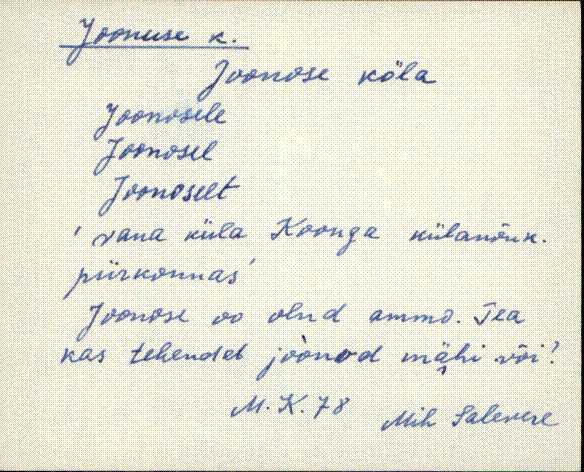 Joonuse k.
Joonose köla
Joonosele
Joonosel
Joonoselt
'vana küla Koonga külanõuk.
piirkonnas'
Joonose oo olnd ammo. Tea
kas tehendet joonod mähi või?
M. K. 78
Mih Salevere